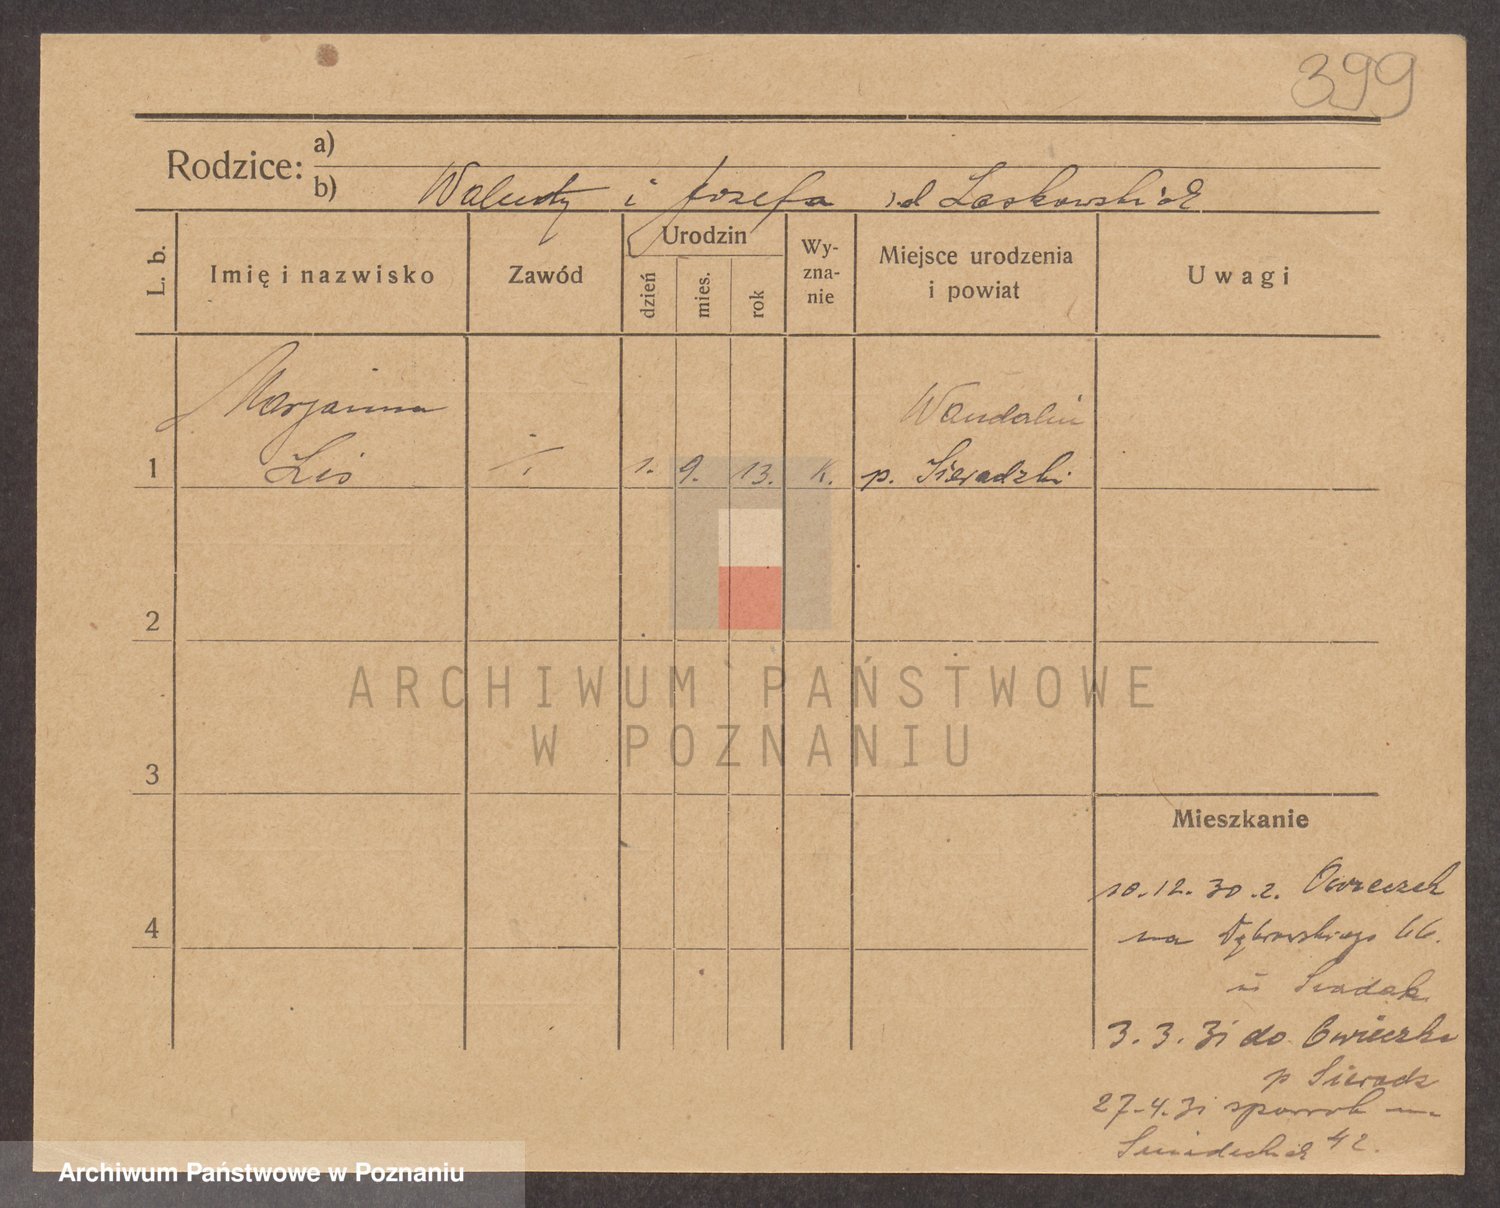 399
Rodzice:
a)
b) Walenty i Józefa z d Laskowskich
L. b.
Imię i nazwisko
Zawód
Urodzin
dzień
mies.
rok
Wy-
zna-
nie
Miejsce urodzenia
i powiat
Uwagi
Marjanna Wandalin
1 Lis ./. 1. 9. 13. k. p. Sieradzki
2
3
4
Mieszkanie
10.12.30. z.
na Dąbrowskiego 66.
u
3. 3. 31 do Owieczka
p Sieradz
27.4.31
42.
ARCHIWUM PAŃSTWOWE
W POZNANIU
Archiwum Państwowe w Poznaniu